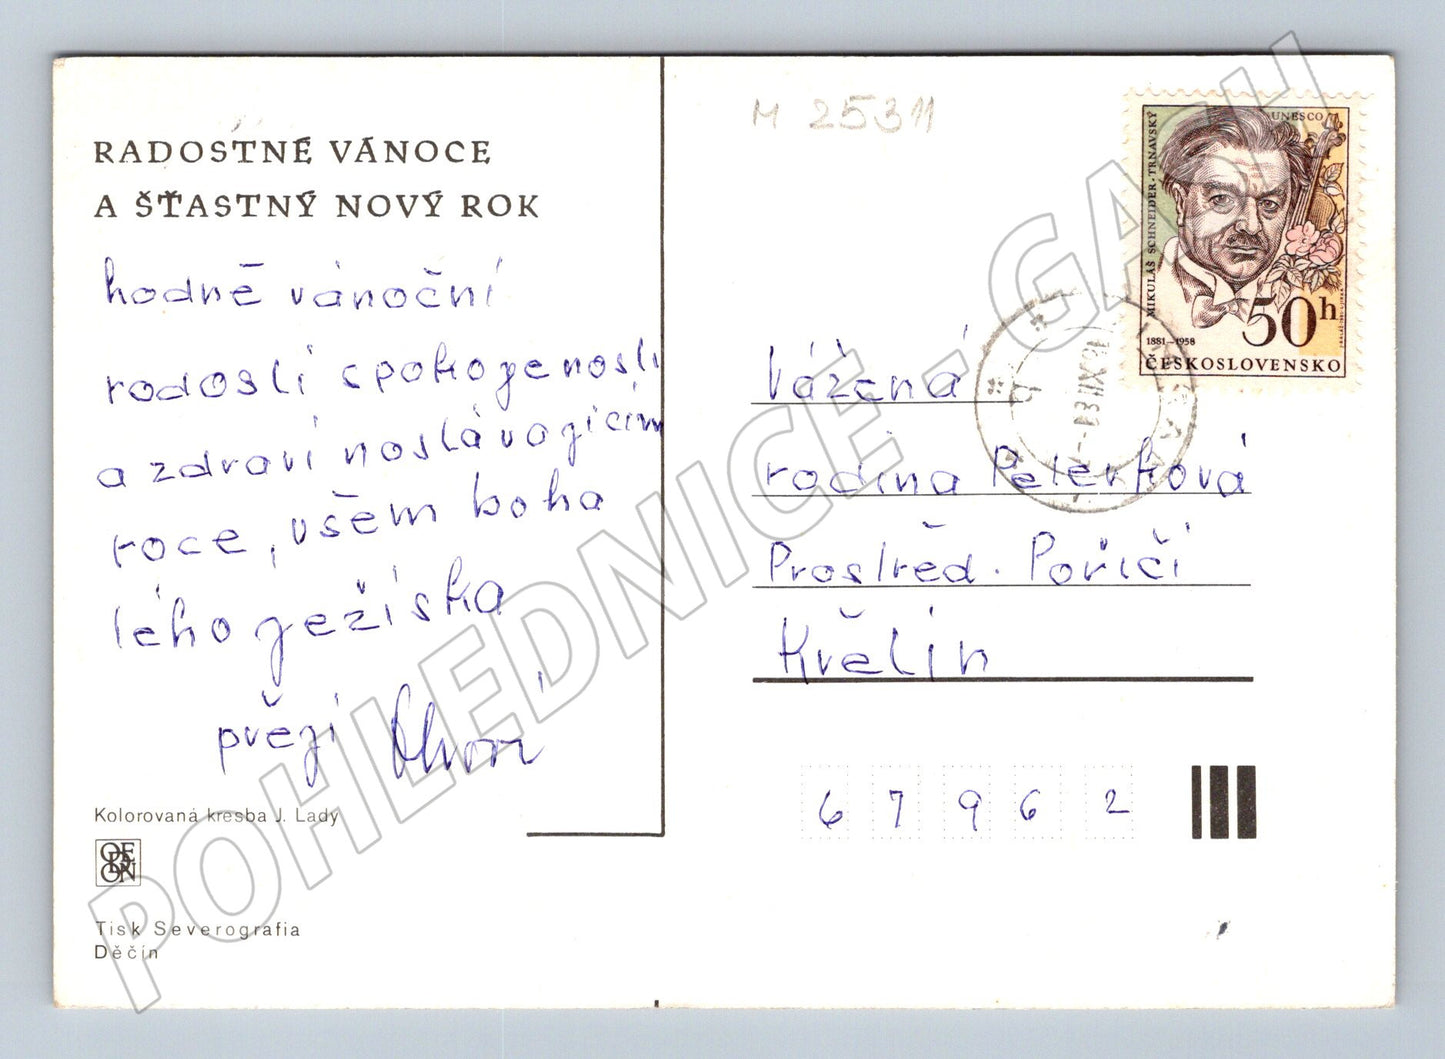 RADOSTNÉ VÁNOCE
A ŠŤASTNÝ NOVÝ ROK
hodně vánoční
radosti spokojenosti
a zdraví nastávajícím
roce, všem boha
tého ježíška
přejí
Kolorovaná kresba J. Lady
ODEON
Tisk Severografia
Děčín
M 25311
MIKULÁŠ SCHNEIDER-TRNAVSKÝ
UNESCO
1881–1958
50h
ČESKOSLOVENSKO
Vážená
rodina Pelerková
Prostřed. Poříčí
Křelín
67962
POHLEDNICE - GASH